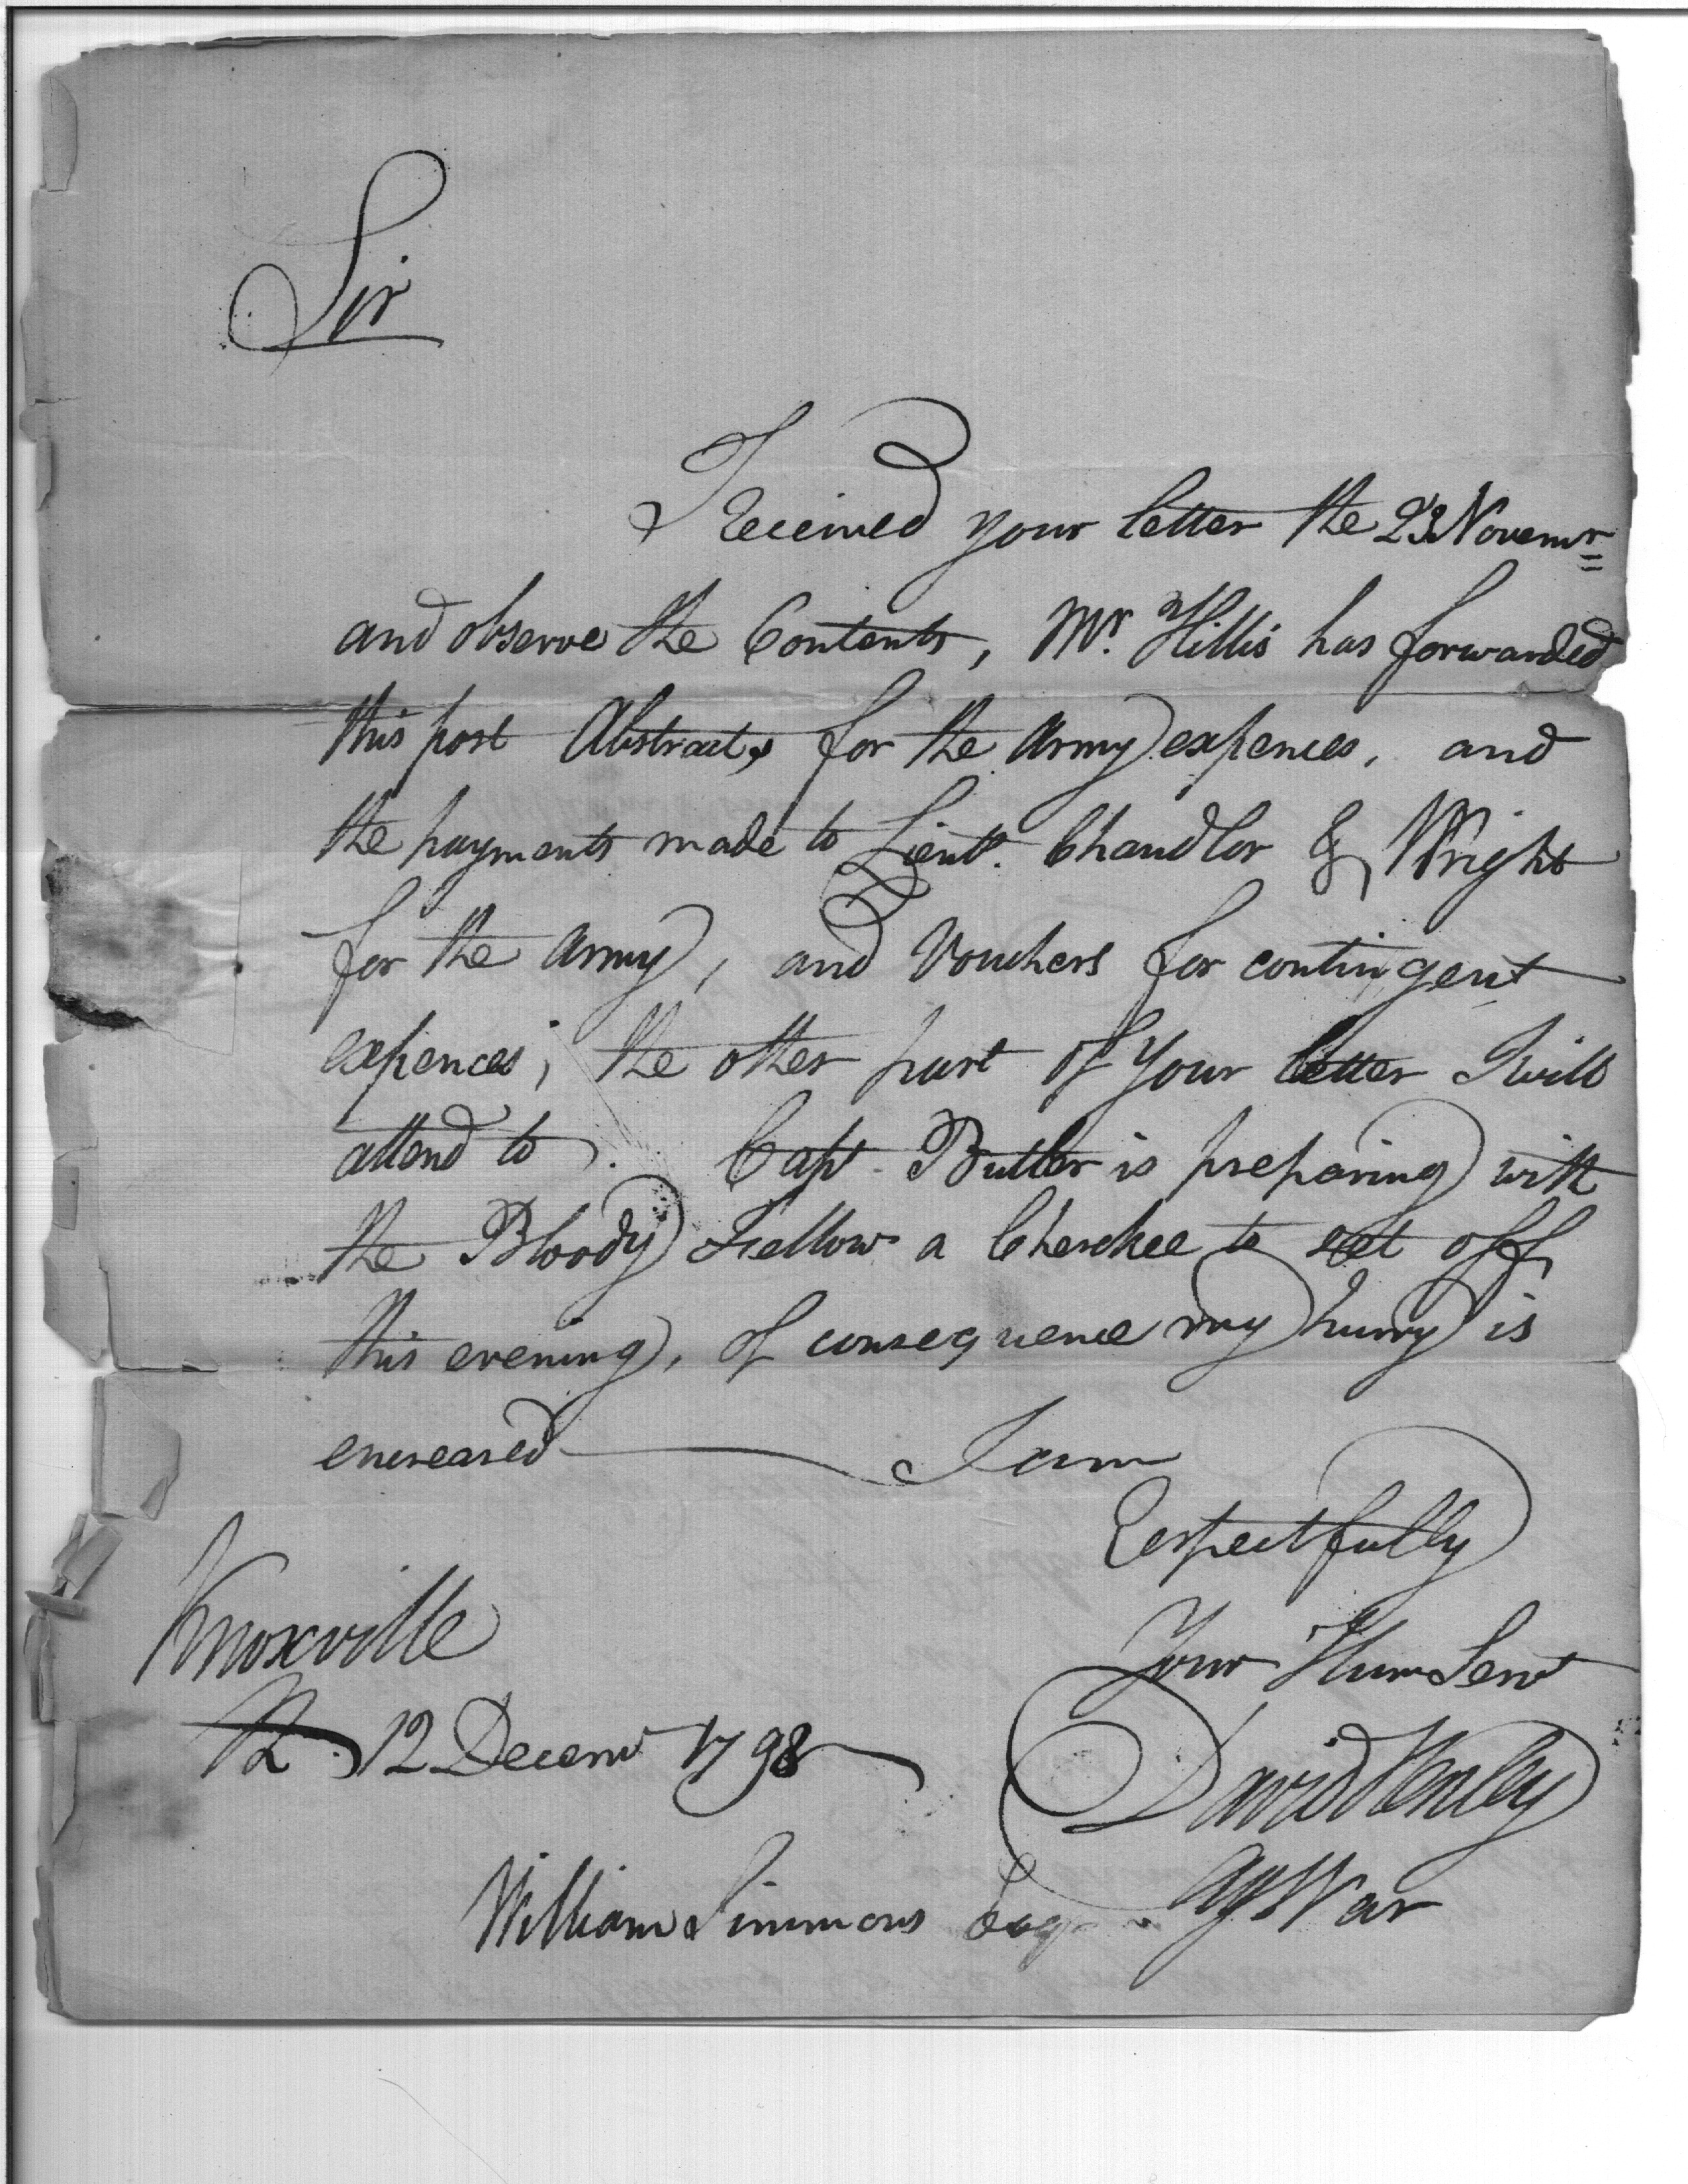 Sir
I Received your letter the 23 Novemr
and observe the Contents, Mr. Hillis has forwarded
this post Abstracts for the Army expences, and
the payments made to Lieut. Chandler & Wright
for the Army, and Vouchers for contingent
expences, the other part of your letter I will
attend to. Capt. Butler is preparing with
the Bloody Fellow a Cherokee to set off
this evening, of consequence my hurry is
encreased I am
Respectfully
Your Hum Servt
Knoxville
The 12 Decemr 1798
David Henley
Ag War
William Simmons Esqr